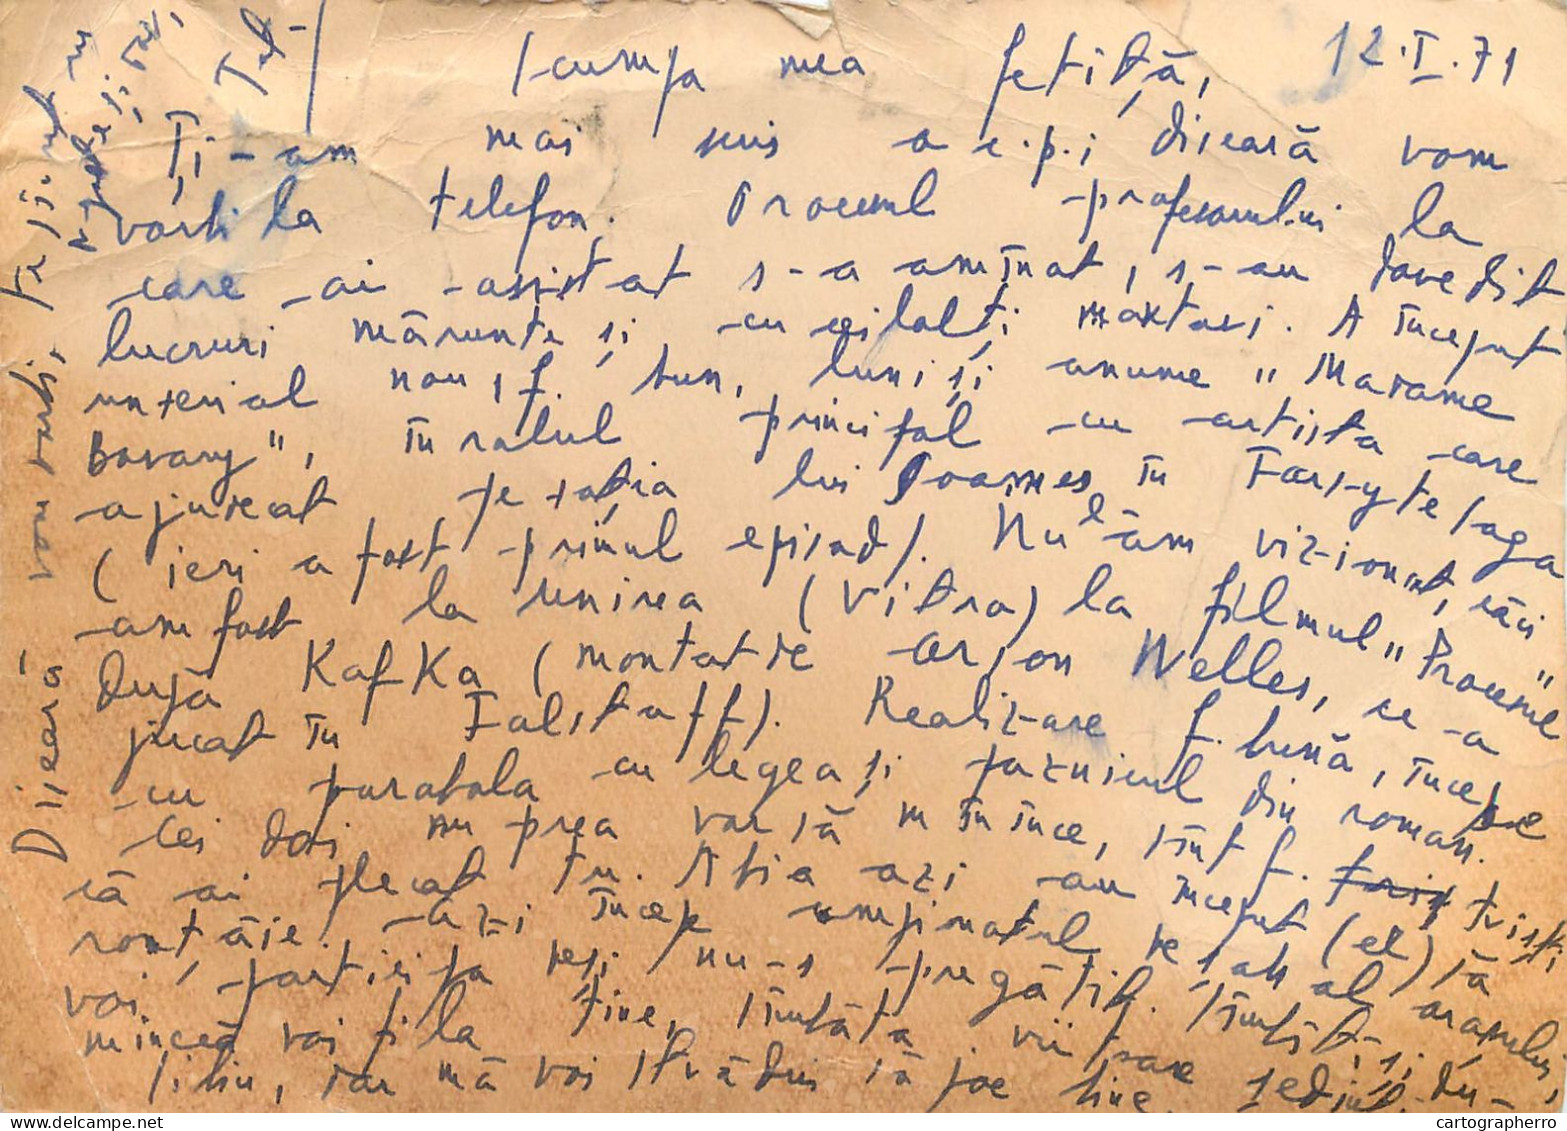 12.I.71
Scumpa mea fetiță,
Ți-am mai scris a e.p.i diseară vom
vorbi la telefon. Procesul profesorului la
care ai asistat s-a amînat, s-au dovedit
lucruri mărunte și cu ceilalți martori. A început
material nou, f. bun, luni și anume "Madame
Bovary", în rolul principal cu artista care
a jucat pe soția lui Soames în Forsyte Saga
(ieri a fost primul episod). Nu l-am vizionat, căci
am fost la Unirea (Vitra) la filmul "Procesul"
după Kafka (montat de Orson Welles, ce a
jucat în Falstaff). Realizare f. bună, începe
cu parabola cu legea și paznicul din roman.
Cei doi nu prea vor să mănînce, sînt f. triști
că ai plecat tu. Abia azi au început (el) să
ronțăie. azi începe campionatul de șah al orașului,
voi participa deși nu-s pregătit. Sîmbătă și du-
minecă voi fi la tine, sîmbăta vii
Sibiu, iar mă voi strădui să joc bine.
Diseară vom vorbi,
Te
Tel
cartographerro